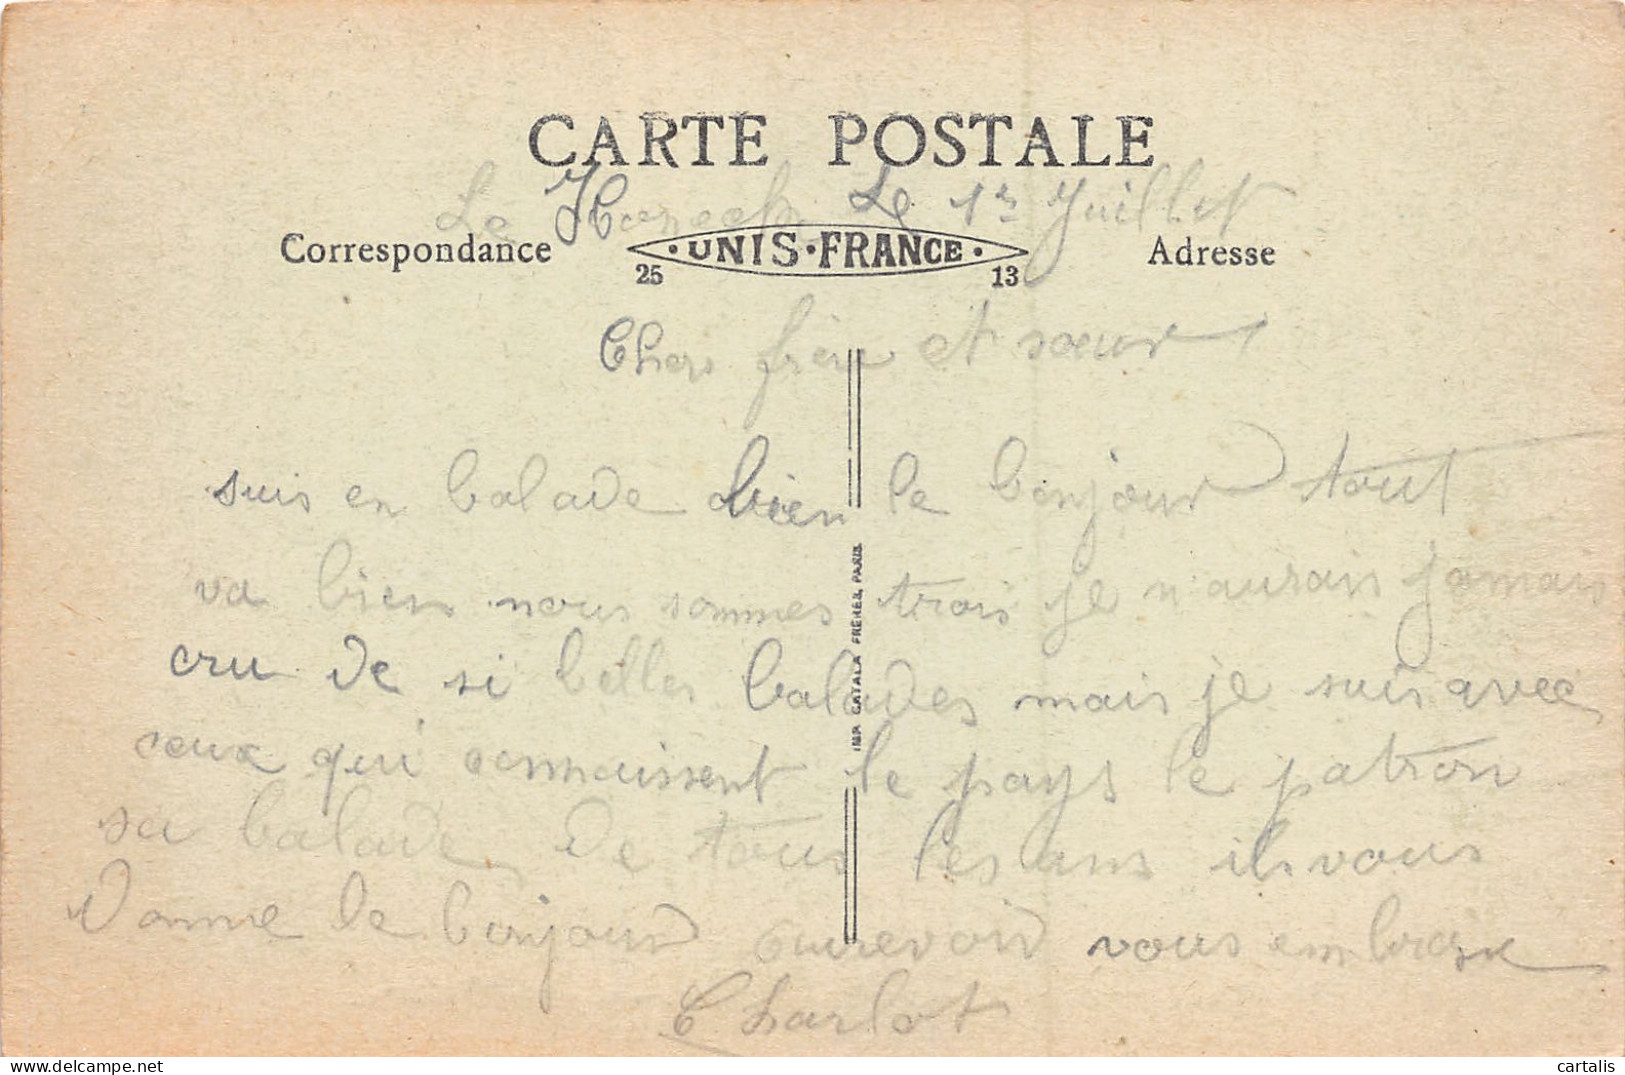 CARTE POSTALE
Le Le 1er Juillet
Correspondance
UNIS-FRANCE
Adresse
25 13
Chers frère et sœur
suis en balade bien le bonjour tout
va bien nous sommes trois je n'aurais jamais
cru de si belles balades mais je suis avec
ceux qui connaissent le pays le patron
sa balade de tous les ans ils vous
donne le bonjour aurevoir vous embrasse
Charlot
IMP. CATALA FRÈRES, PARIS.
cartalis